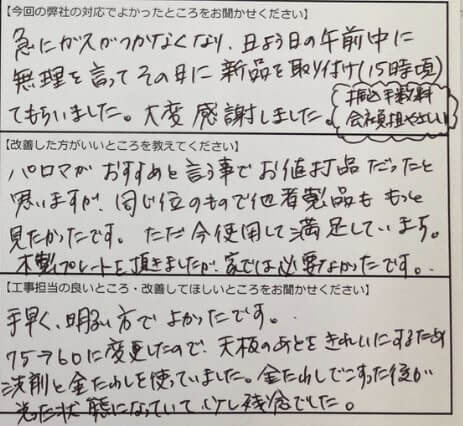 【今回の弊社の対応でよかったところをお聞かせください】
急にガスがつかなくなり、日よう日の午前中に
無理を言ってその日に新品を取り付け(15時頃)
てもらいました。大変感謝しました。
振込手数料
会社負担やさしい
【改善した方がいいところを教えてください】
パロマがおすすめと言う事でお値打品だったと
思いますが、同じ位のもので他者製品ももっと
見たかったです。ただ今使用して満足しています。
木製プレートを頂きましたが、家では必要なかったです。
【工事担当の良いところ・改善してほしいところをお聞かせください】
手早く、明るい方でよかったです。
75→60に変更したので、天板のあとをきれいにするため
洗剤と金だわしを使っていました。金だわしでこすった後が
光た状態になっていて少し残念でした。